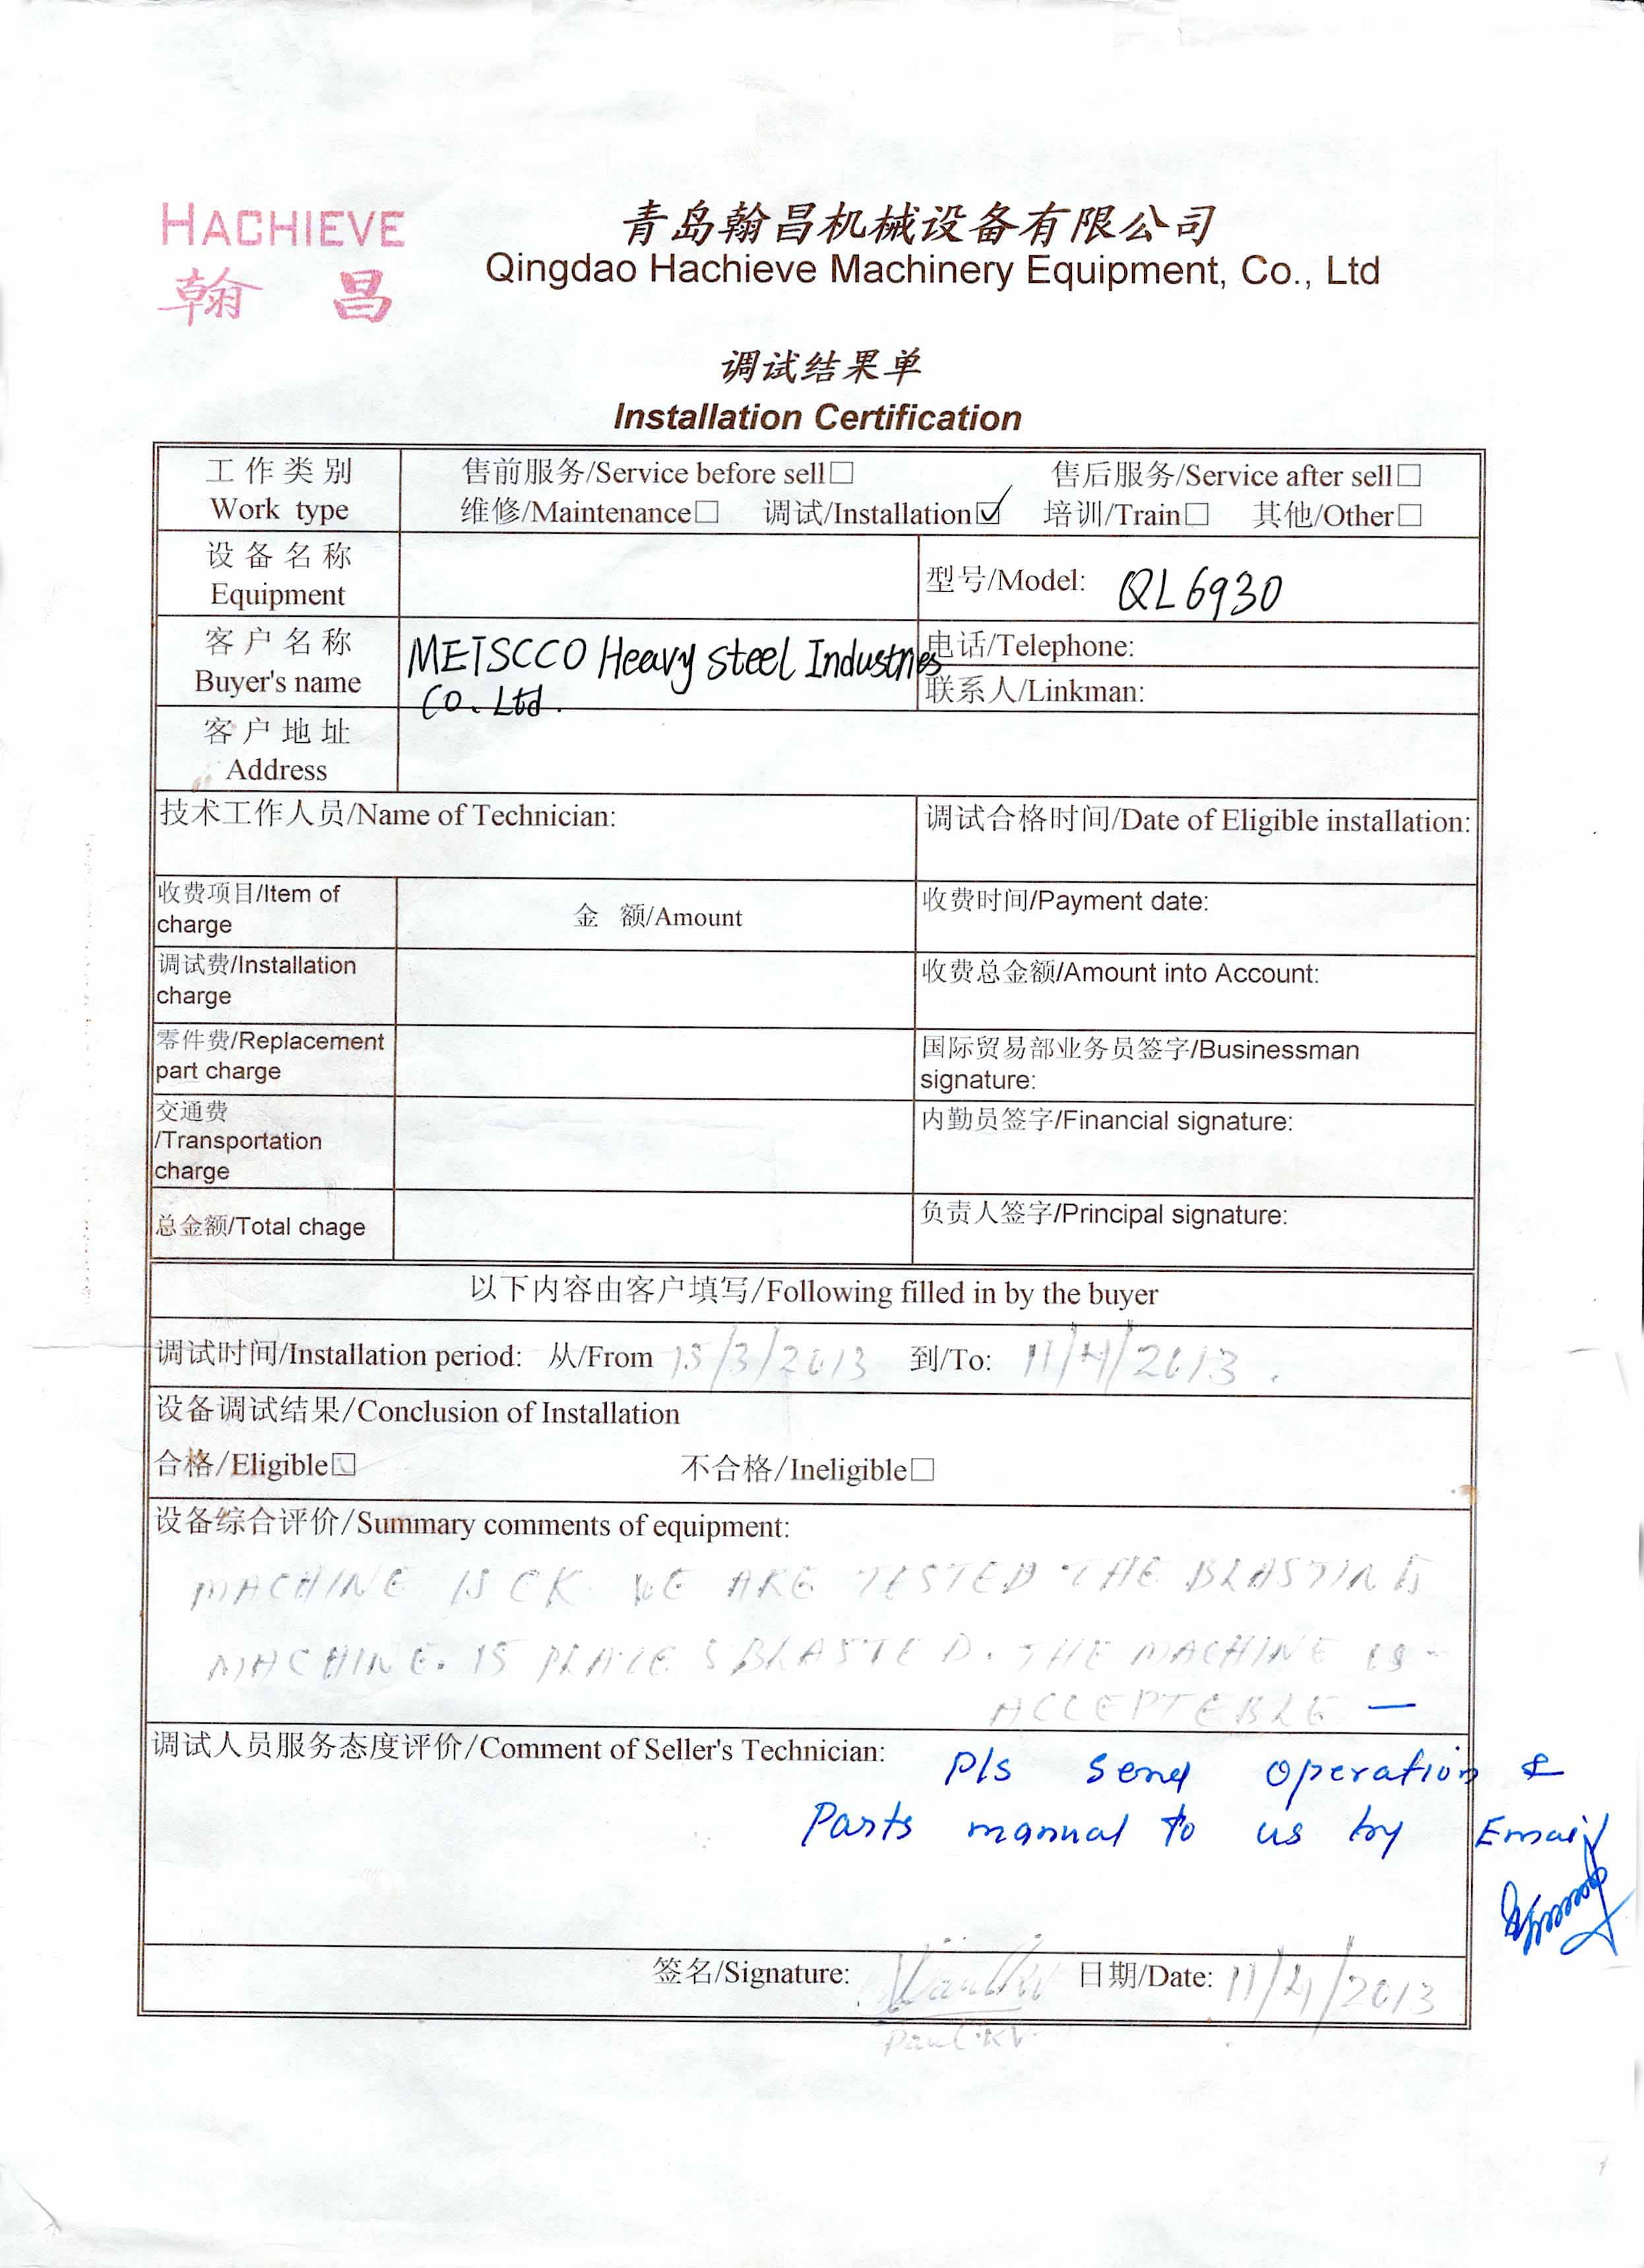 HACHIEVE
翰 昌
青岛翰昌机械设备有限公司
Qingdao Hachieve Machinery Equipment, Co., Ltd
调试结果单
Installation Certification
工作类别 售前服务/Service before sell□ 售后服务/Service after sell□
Work type 维修/Maintenance□ 调试/Installation☑ 培训/Train□ 其他/Other□
设备名称
Equipment 型号/Model: QL6930
客户名称 MEISCCO Heavy Steel Industries 电话/Telephone:
Buyer's name Co. Ltd. 联系人/Linkman:
客户地址
Address
技术工作人员/Name of Technician: 调试合格时间/Date of Eligible installation:
收费项目/Item of
charge 金 额/Amount 收费时间/Payment date:
调试费/Installation
charge 收费总金额/Amount into Account:
零件费/Replacement
part charge
国际贸易部业务员签字/Businessman
signature:
交通费
/Transportation
charge 内勤员签字/Financial signature:
总金额/Total chage 负责人签字/Principal signature:
以下内容由客户填写/Following filled in by the buyer
调试时间/Installation period: 从/From 15/3/2013 到/To: 11/4/2013.
设备调试结果/Conclusion of Installation
合格/Eligible☑ 不合格/Ineligible□
设备综合评价/Summary comments of equipment:
MACHINE IS OK WE ARE TESTED THE BLASTING
MACHINE. IS BLASTED. THE MACHINE IS
ACCEPTEBLE —
调试人员服务态度评价/Comment of Seller's Technician:
Pls send operation &
Parts manual to us by Email
签名/Signature: 日期/Date: 11/4/2013
Paul KV